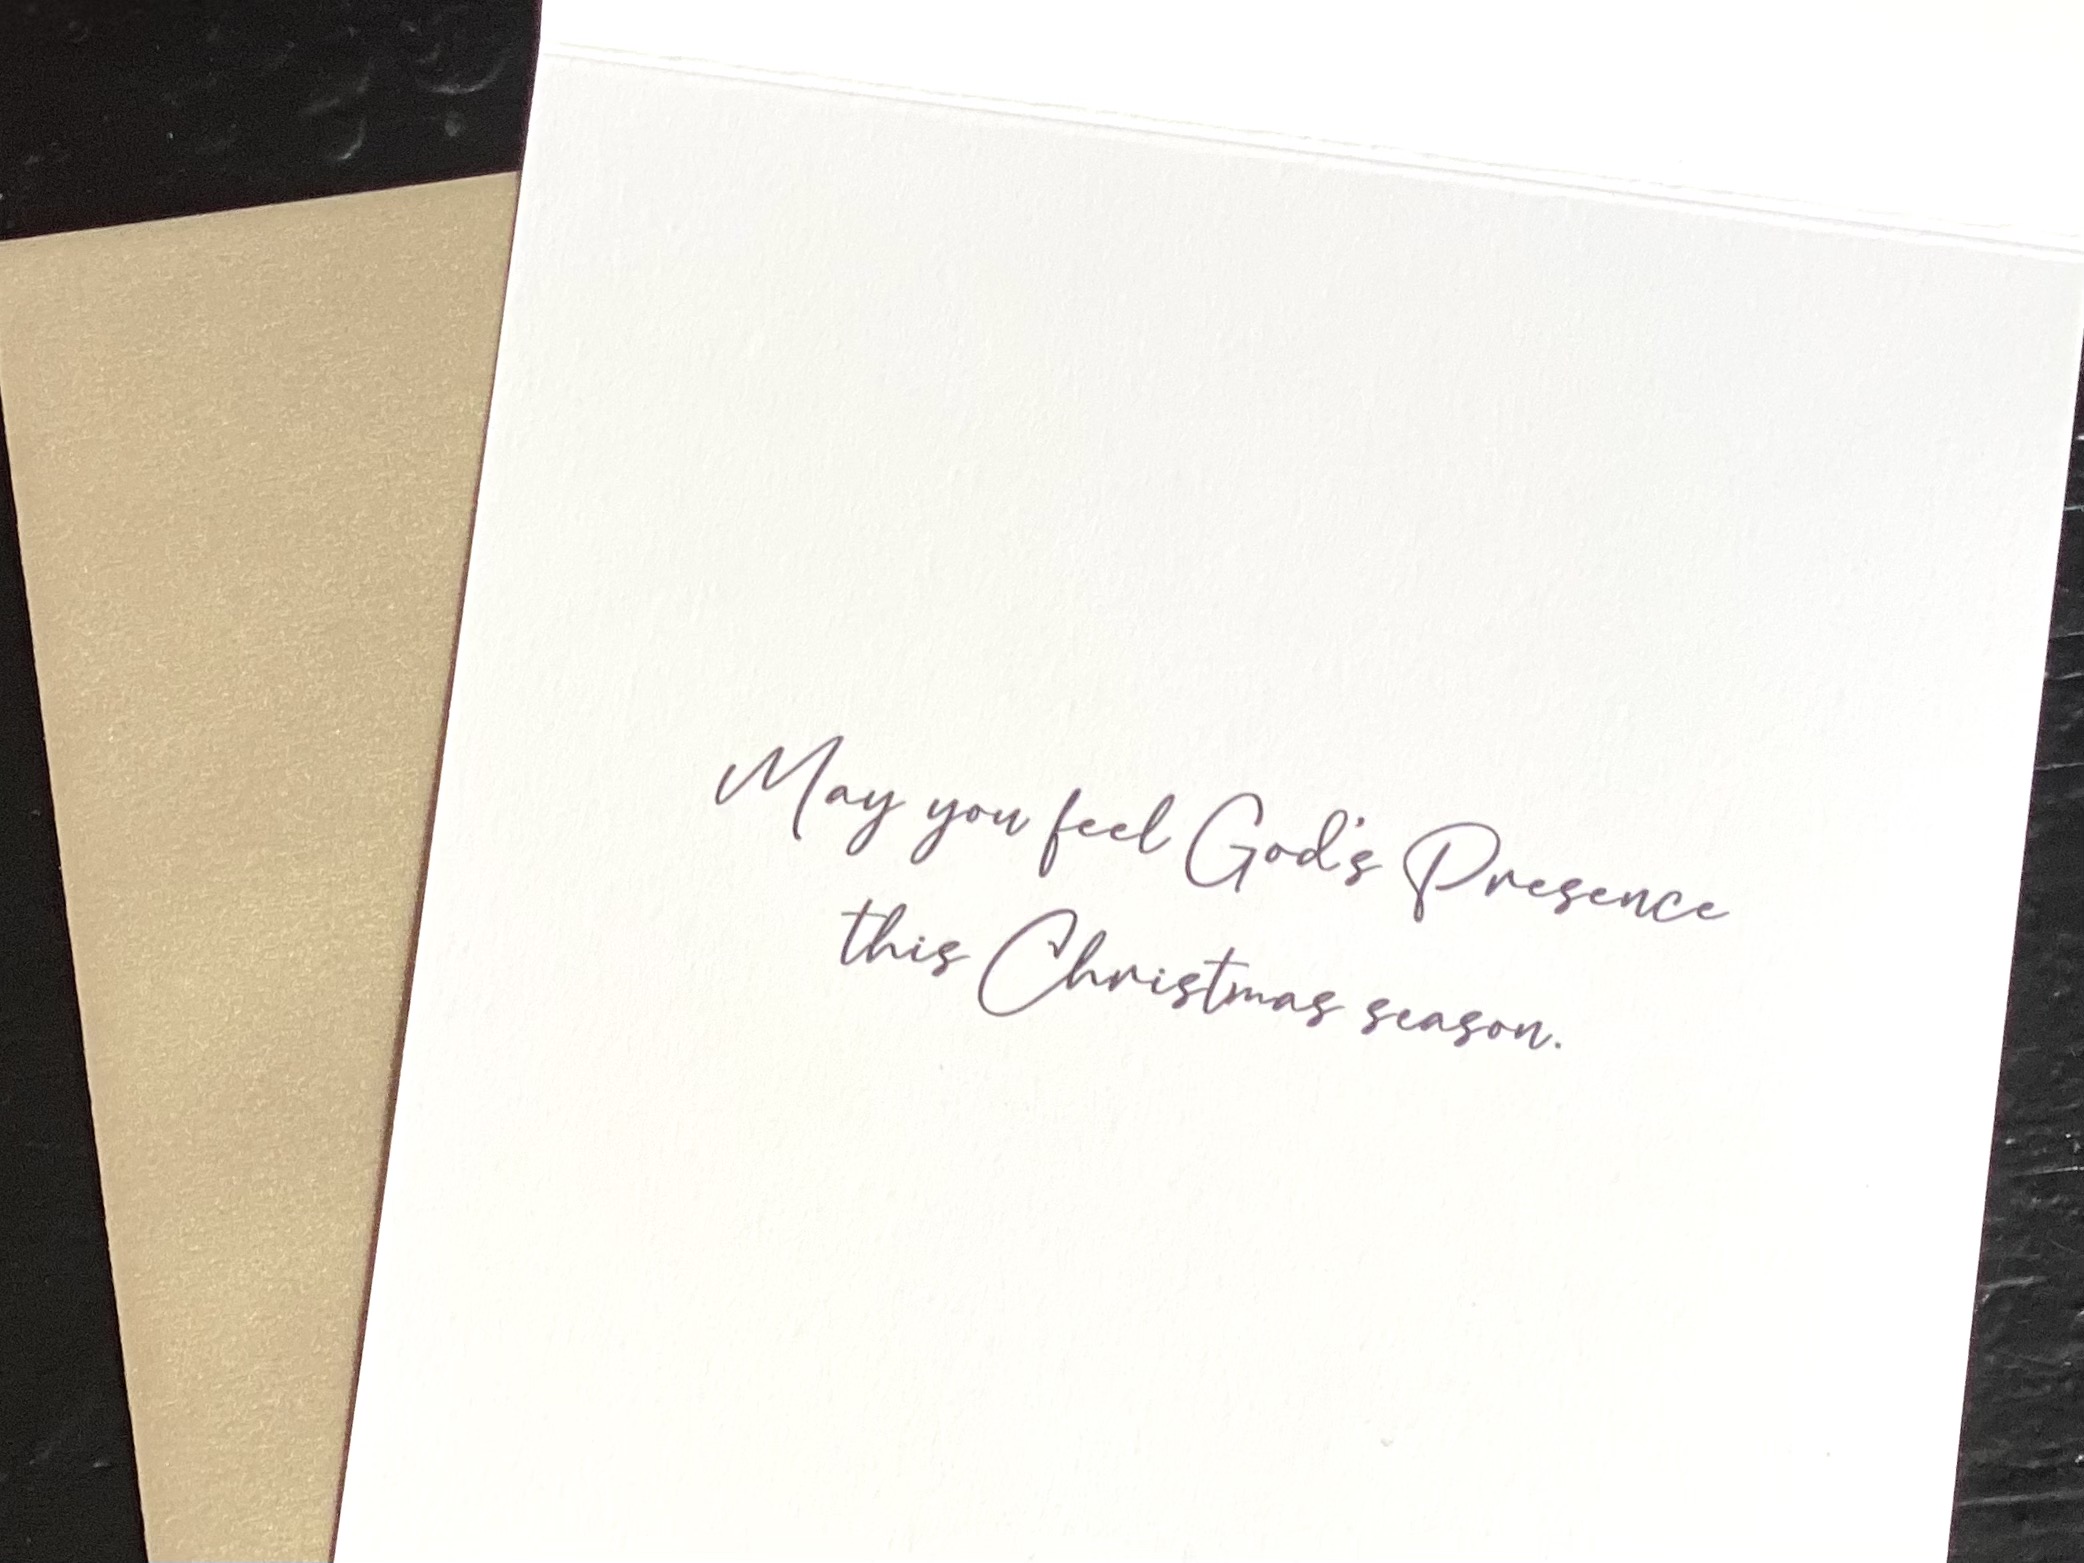 May you feel God's Presence
this Christmas season.